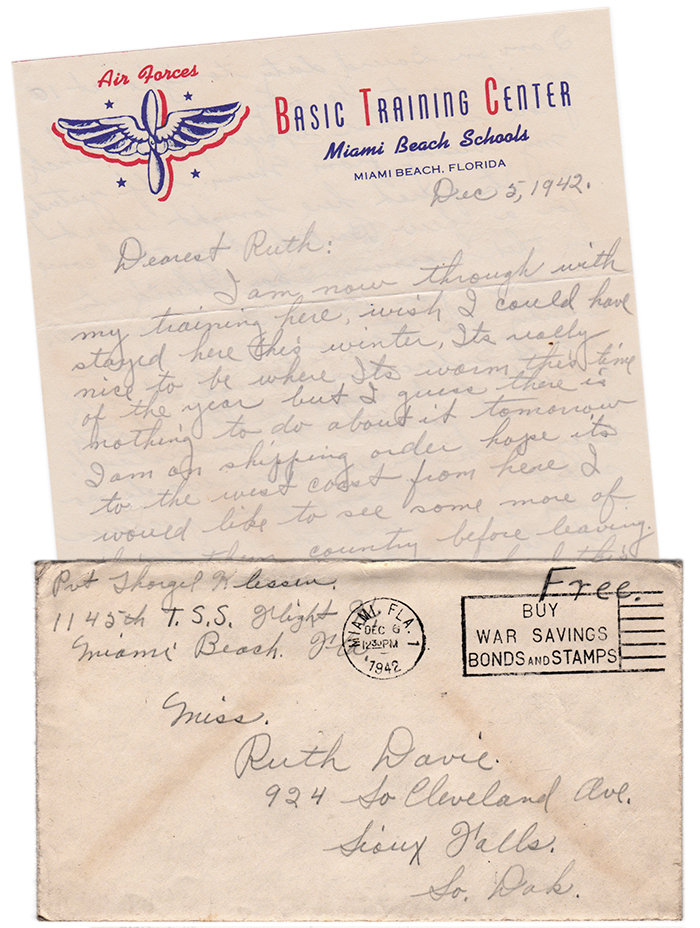 Air Forces
BASIC TRAINING CENTER
Miami Beach Schools
MIAMI BEACH, FLORIDA
Dec 5, 1942.
Dearest Ruth:
I am now through with
my training here, wish I could have
stayed here this winter, Its really
nice to be where Its warm this time
of the year but I guess there is
nothing to do about it tomorrow
I am on shipping order hope its
to the west coast from here I
would like to see some more of
country before leaving.
Pvt Thorgel Klessen.
1145th T.S.S. Flight
Miami Beach. Fla
MIAMI, FLA. 1
DEC 6
12 30 PM
1942
Free.
BUY
WAR SAVINGS
BONDS AND STAMPS
Miss.
Ruth Davie.
924 So Cleveland Ave.
Sioux Falls.
So. Dak.